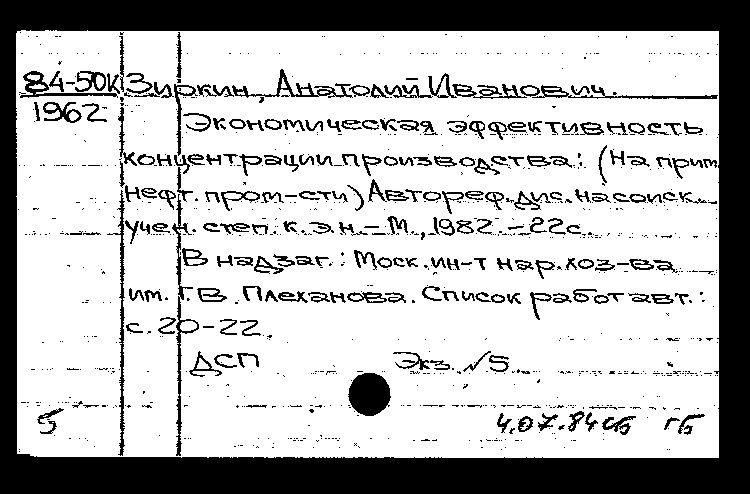 84-50К Зиркин, Анатолий Иванович.
1962
Экономическая эффективность
концентрации производства: (На прим.
нефт. пром-сти) Автореф. дис. на соиск.
учен. степ. к. э. н. – М., 1982. – 22с.
В надзаг.: Моск. ин-т нар. хоз-ва
им. Г. В. Плеханова. Список работ авт.:
с. 20-22.
ДСП Экз. №5
5 4.07.84 сб гб